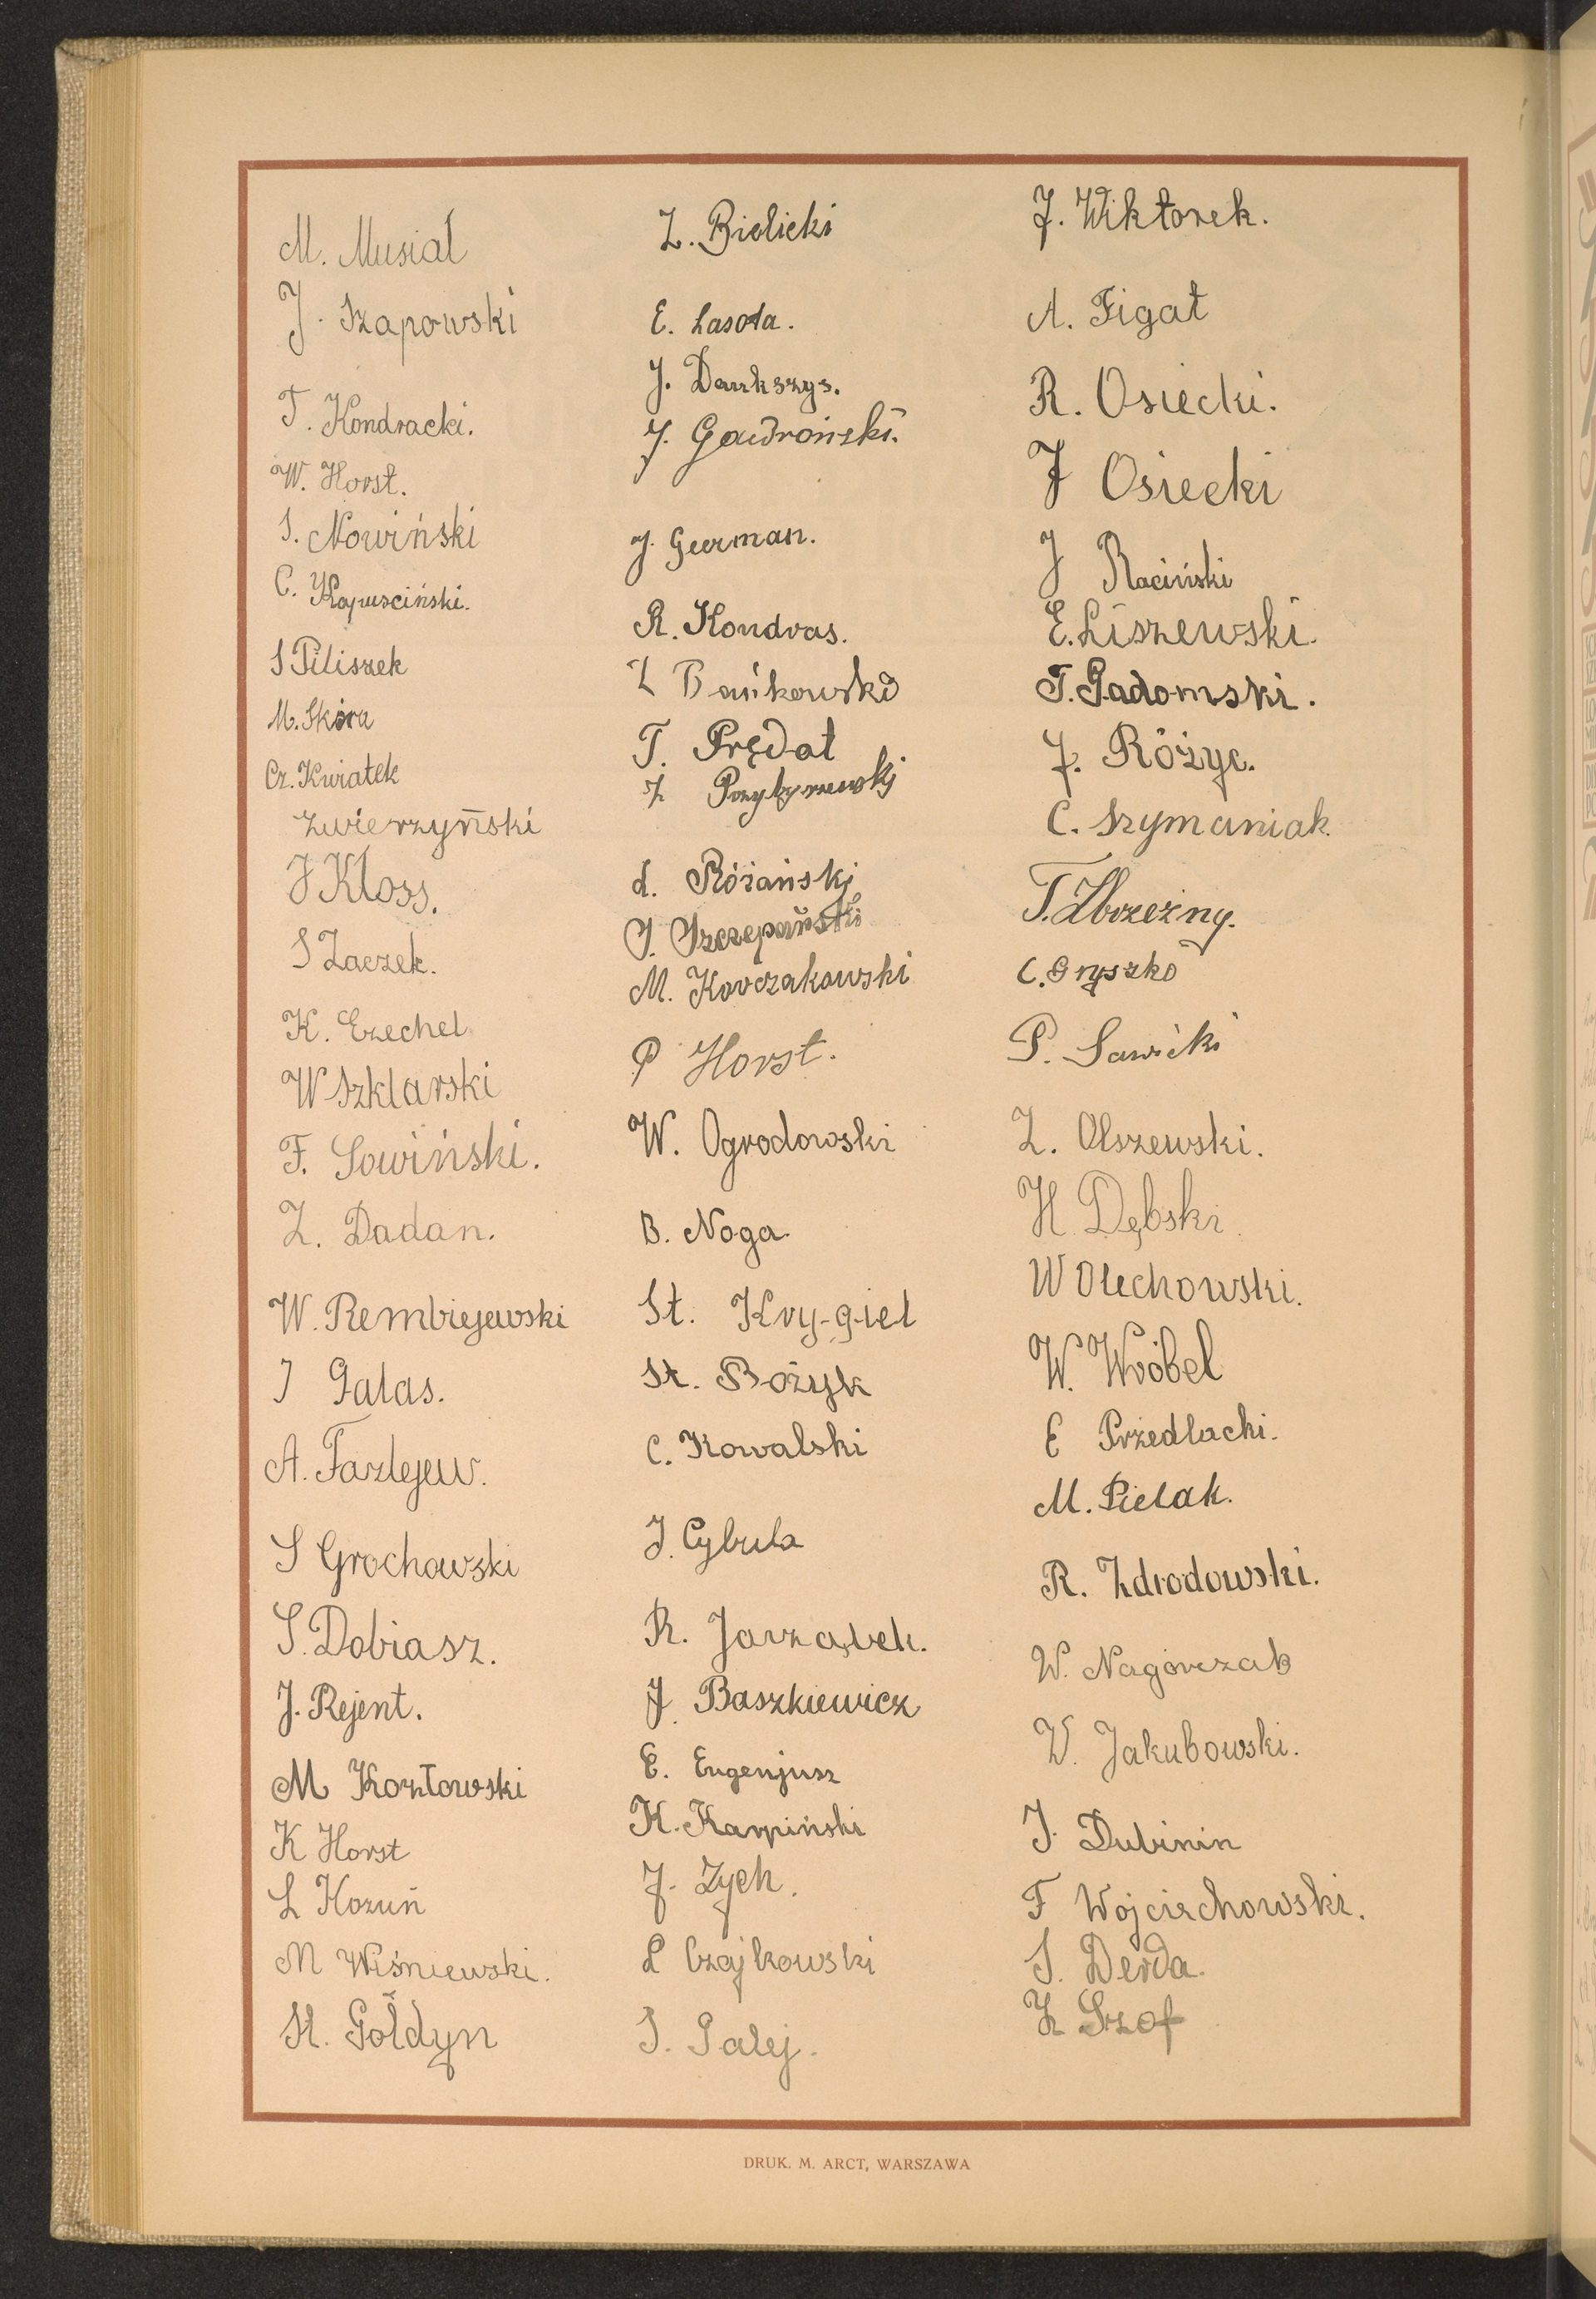 M. Musiał
J. Szapowski
T. Kondracki.
W. Horst.
S. Nowiński
C. Kapusciński.
S Piliszek
M. Skóra
Cz. Kwiatek
Zwierzyński
J Kloss.
S Zaczek.
K. Ezechel
W Szklarski
F. Sowiński.
Z. Dadan.
W. Rembiejewski
J Galas.
A. Fazlejew.
S Grochowski
S. Dobiasz.
J. Rejent.
M Kozłowski
K Horst
L Kozuń
M Wiśniewski.
St. Gołdyn
Z. Bielicki
E. Lasota.
J. Daukszys.
J. Gawroński.
J. German.
R. Kondras.
Z Bańkowski
T. Prędat
Z Przybyszewski
L. Różański
J. Szczepański
M. Korczakowski
P Horst.
W. Ogrodowski
B. Noga.
St. Kry-giel
St. Bożyk
C. Kowalski
J. Cybula
R. Jarząbek.
J. Baszkiewicz
E. Eugenjusz
K. Karpiński
J. Zych.
L Czajkowski
S. Galej.
J. Wiktorek.
A. Figat
R. Osiecki.
J Osiecki
J Raciński
E. Liszewski.
T. Gadomski.
J. Różyc.
C. Szymaniak.
T. Zbrzeżny.
C. Gryszko
P. Sawicki
Z. Olszewski.
H. Dębski.
W Olechowski.
W. Wróbel
E Przedlacki.
M. Pielak.
R. Zdrodowski.
W. Nagórczak
W. Jakubowski.
J. Dubinin
F Wojciechowski.
S. Derda.
Z Szof
DRUK. M. ARCT, WARSZAWA